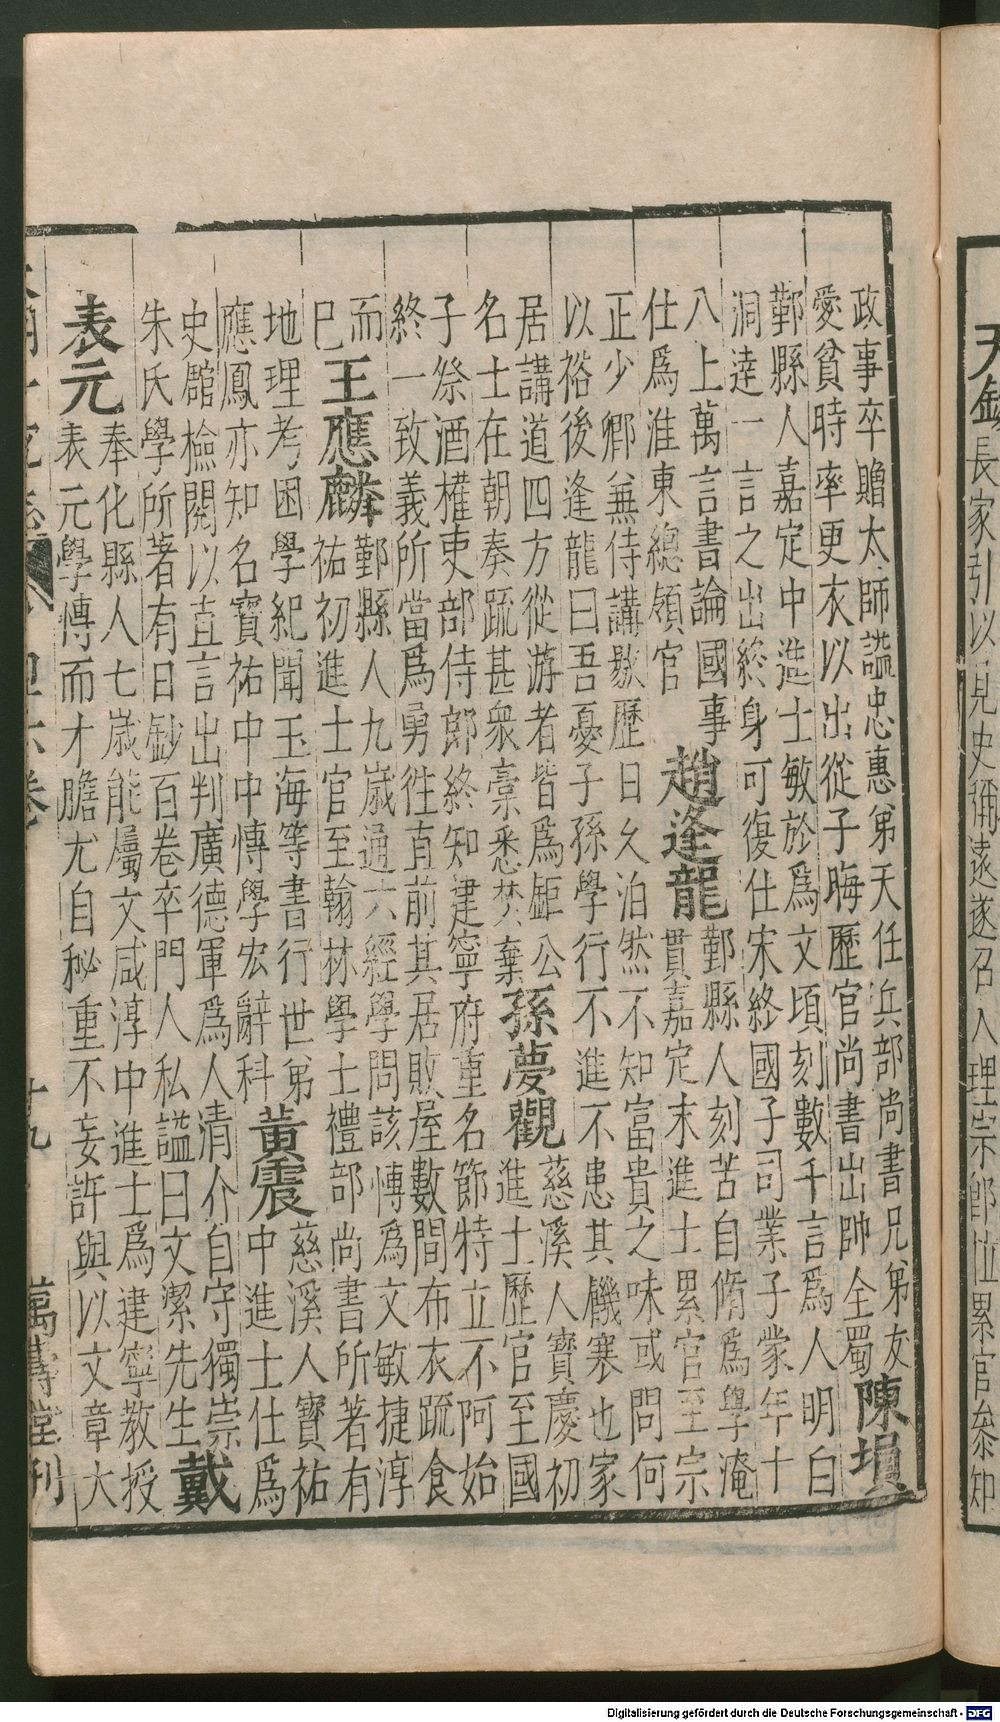 天錫
長家引以見史彌遠遂召入理宗卽位累官參知
政事卒贈太師謚忠惠弟天任兵部尚書兄弟友
愛貧時率更衣以出從子晦歷官尚書出帥全蜀
陳塤
鄞縣人嘉定中進士敏於爲文頃刻數千言爲人明白
洞逹一言之出終身可復仕宋終國子司業子蒙年十
八上萬言書論國事
仕爲淮東總領官
趙逢龍
鄞縣人刻苦自脩爲學淹
貫嘉定末進士累官至宗
正少卿兼侍講敭歷日久泊然不知富貴之味或問何
以裕後逢龍曰吾憂子孫學行不進不患其饑寒也家
居講道四方從游者皆爲鉅公
名士在朝奏疏甚衆藁悉焚棄
孫夢觀
慈溪人寶慶初
進士歷官至國
子祭酒權吏部侍郎終知建寧府重名節特立不阿始
終一致義所當爲勇往直前其居敗屋數間布衣疏食
而
巳
王應麟
鄞縣人九歲通六經學問該博爲文敏捷淳
祐初進士官至翰林學士禮部尚書所著有
地理考困學紀聞玉海等書行世弟
應鳳亦知名寶祐中中博學宏辭科
黃震
慈溪人寶祐
中進士仕爲
史館檢閱以直言出判廣德軍爲人清介自守獨崇
朱氏學所著有日鈔百卷卒門人私謚曰文潔先生
戴
表元
奉化縣人七歲能屬文咸淳中進士爲建寧教授
表元學博而才膽尤自秘重不妄許與以文章大
十九
萬壽堂刊
Digitalisierung gefördert durch die Deutsche Forschungsgemeinschaft - DFG